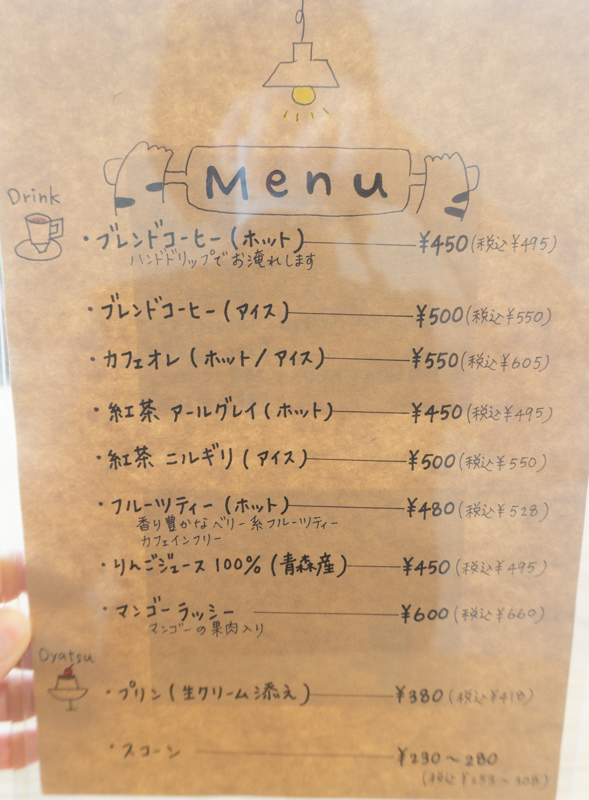 Menu
Drink
・ブレンドコーヒー(ホット) ¥450(税込¥495)
ハンドドリップでお淹れします
・ブレンドコーヒー(アイス) ¥500(税込¥550)
・カフェオレ(ホット/アイス) ¥550(税込¥605)
・紅茶 アールグレイ(ホット) ¥450(税込¥495)
・紅茶 ニルギリ(アイス) ¥500(税込¥550)
・フルーツティー(ホット) ¥480(税込¥528)
香り豊かなベリー系フルーツティー
カフェインフリー
・りんごジュース 100%(青森産) ¥450(税込¥495)
・マンゴーラッシー ¥600(税込¥660)
マンゴーの果肉入り
Oyatsu
・プリン(生クリーム添え) ¥380(税込¥418)
・スコーン ¥230~280